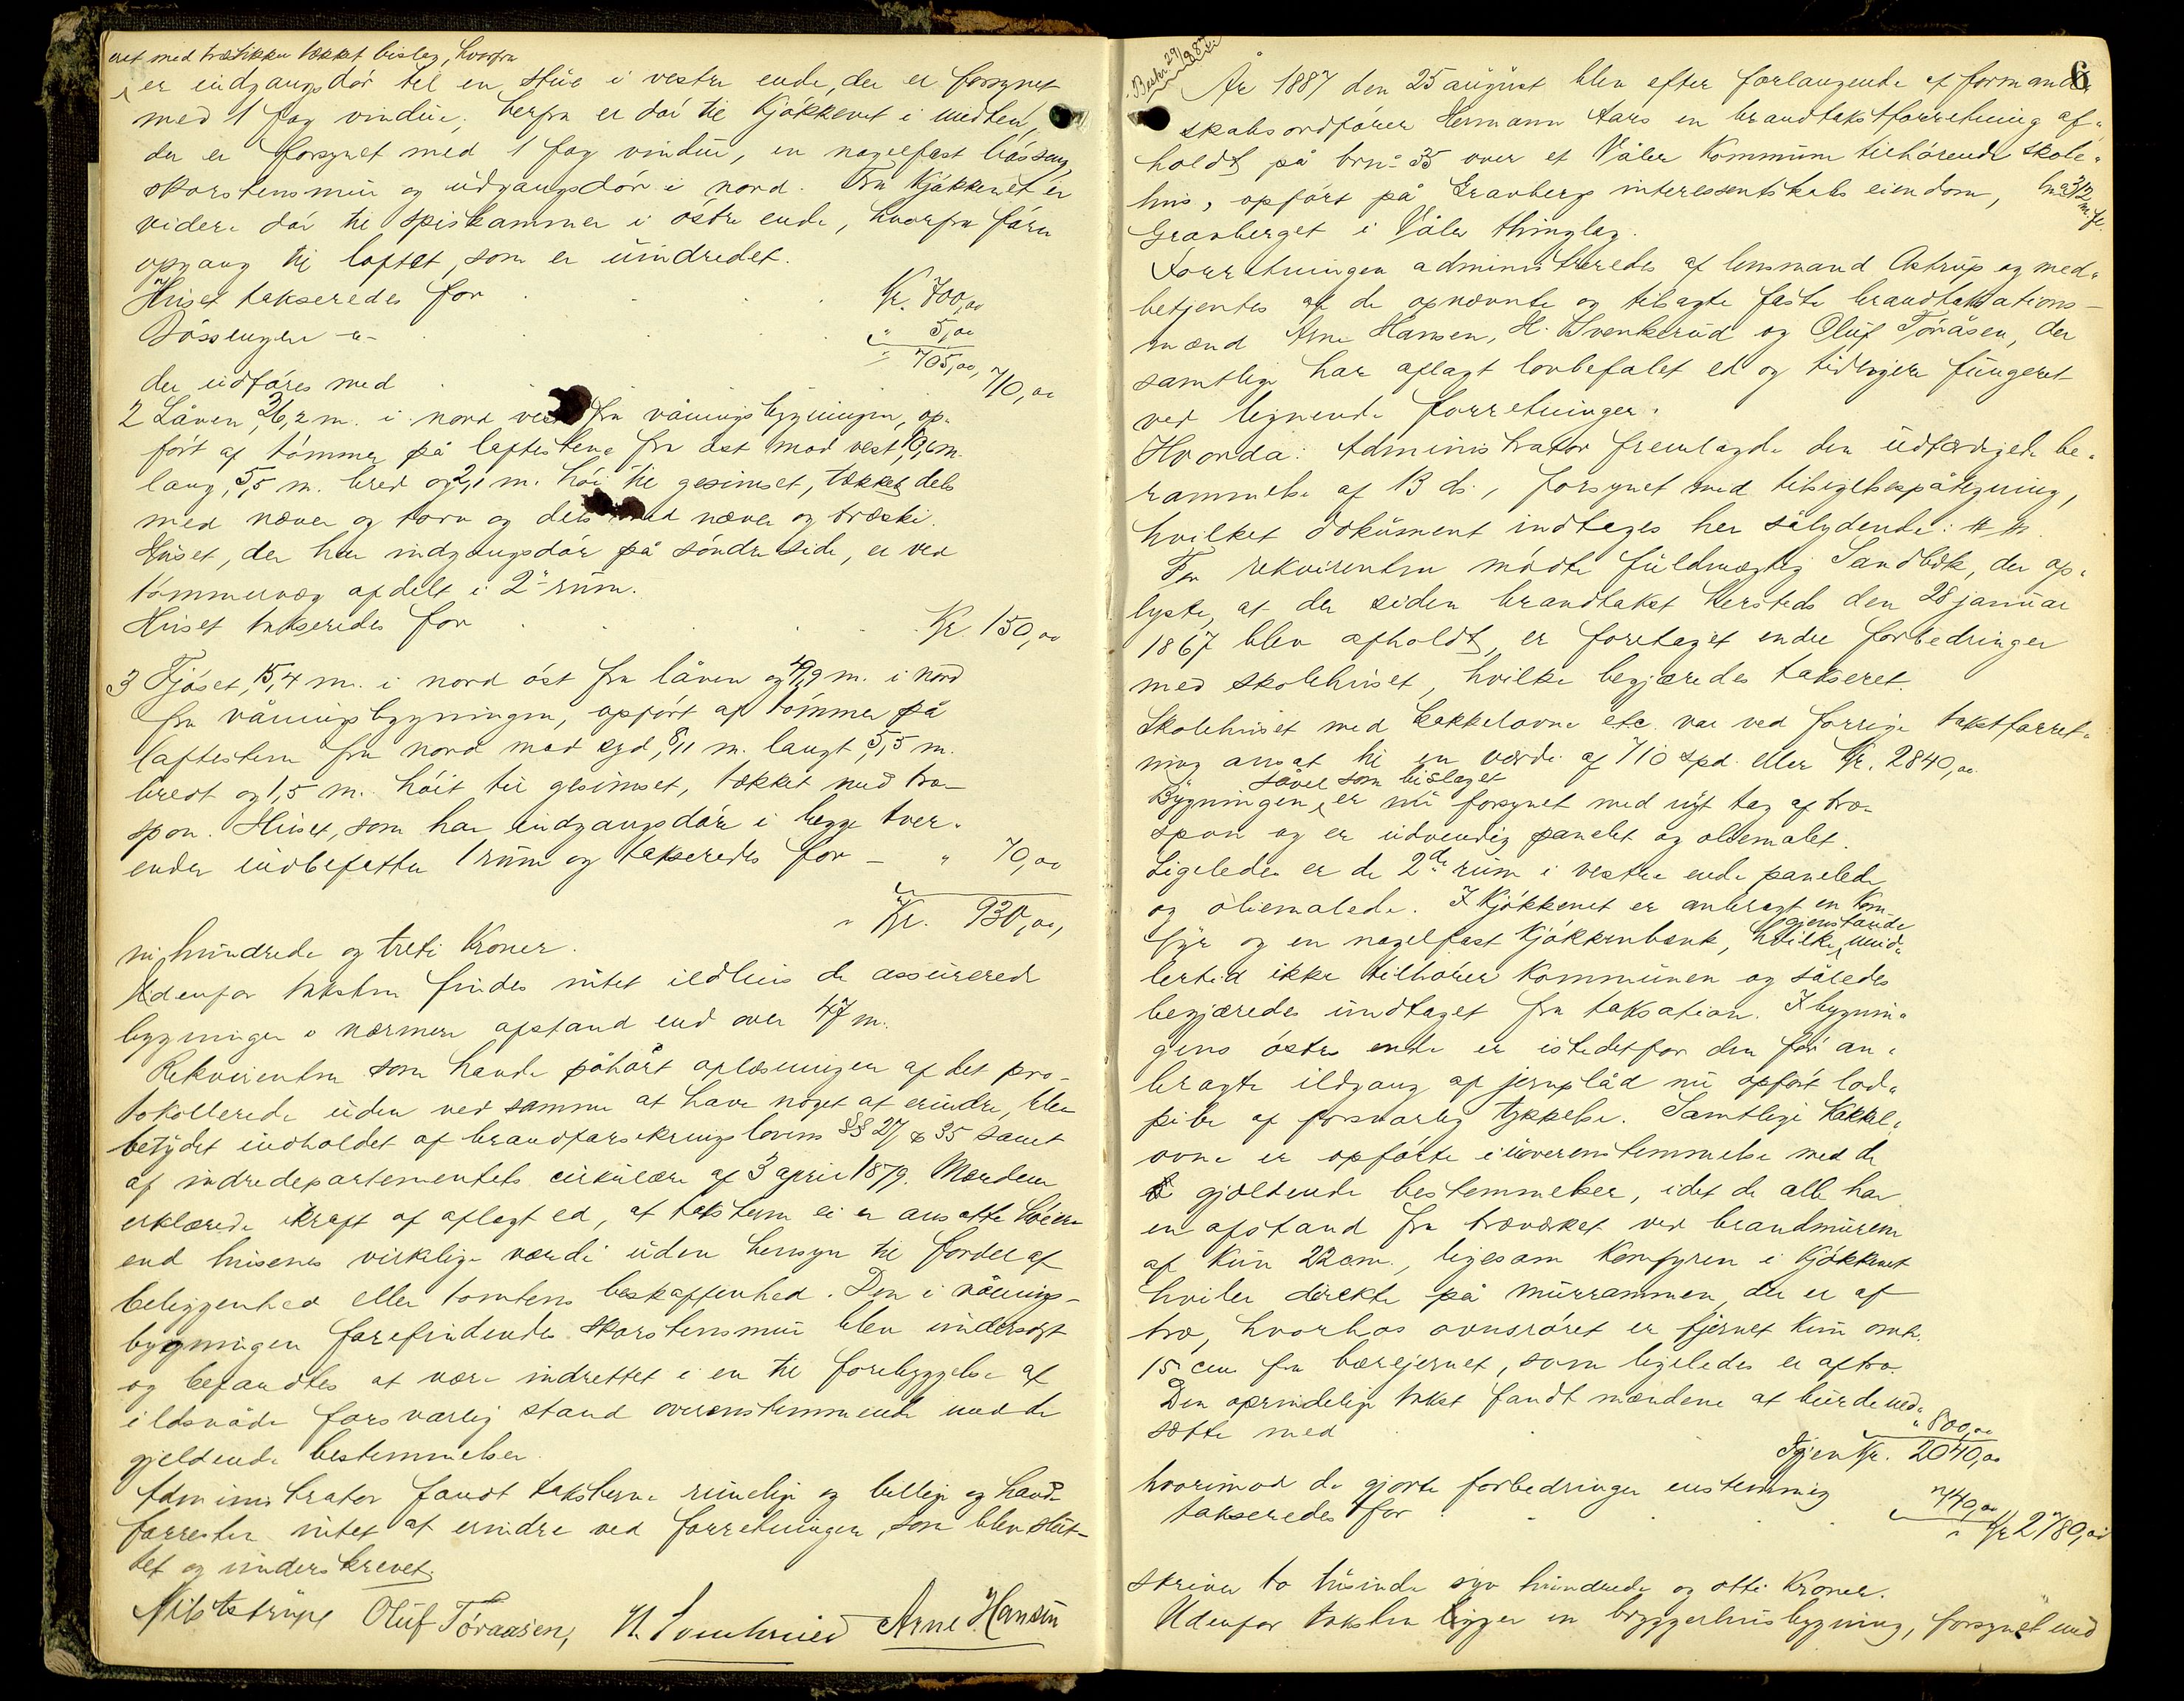 et med træstikker tækket bislag, hvorfra
er indgangsdør til en stue i vestre ende, der er forsynet
med 1 fag vindue, herfra er dør til kjøkkenet i midten,
der er forsynet med 1 fag vindue, en nagelfast bóssæng
skorstensmur og udgangsdør i nord. Fra kjøkkenet er
videre dør til spiskammer i østre ende, hvorfra fører
opgang til loftet, som er uindredet.
Huset takseredes for Kr. 700,00
Bóssengen -"- " 5,00
" 705,00,
der udføres med 710,00
2 Låven, 26,2 m. i nord vest fra våningsbygningen, op-
ført af tømmer på laftestene fra øst mod vest, 10,6 m.
lang, 5,5 m. bred og 2,1 m. høi til gesimset, tækket dels
med næver og torv og dels med næver og træski.
Huset, der har indgangsdør på søndre side, er ved
tømmervæg afdelt i 2 rum.
Huset takseredes for Kr. 150,00
3 Fjøset, 15,4 m. i nord øst fra låven og 49,9 m. i nord
fra våningsbygningen, opført af tømmer på
laftesten fra nord mod syd, 8,11 m. langt, 5,5 m.
bredt og 1,5 m. høit til gesimset, tækket med træ-
spon. Huset, som har indgangsdøre i begge tver-
ender indbefatter 1 rum og takseredes for - " 70,00
Kr. 930,00,
ni hundrede og treti Kroner.
Udenfor taksten findes intet ildhus de assurerede
bygninger i nærmere afstand end over 47 m.
Rekvirenten som havde påhørt oplæsningen af det pro-
tokollerede uden ved samme at have noget at erindre, blev
betydet indholdet af brandforsikringslovens §§ 27, & 35 samt
af indredepartementets cirkulære af 3 april 1879. Mændene
erklærede i kraft af aflagt ed, at taksterne ei er ansatte høiere
end husenes virkelige værdi uden hensyn til fordel af
beliggenhed eller tomtens beskaffenhed. Den i vånings-
bygningen forefindendes skorstensmur blev undersøgt
og befandtes at være indrettet i en til forebyggelse af
ildsvåde forsvarlig stand overensstemmende med de
gjeldende bestemmelser.
Administrator fandt taksterne rimelige og billige og havde
forresten intet at erindre ved forretningen, som blev slut-
tet og underskrevet.
Nils Astrup Oluf Tøraasen, H. Svenkerud Arne Hansen
6
År 1887 den 25 august blev efter forlangende af formand-
skabsordfører Hermann Aars en brandtakstforretning af-
holdt på brnº 35 over et Våler Kommune tilhørende skole-
hus, opført på Gravberg interessentskabs eiendom,
Gravberget i Våler thinglag.
Forretningen administreredes af lensmand Astrup og med-
betjentes af de opnævnte og tilsagte faste brandtaksations-
mænd Arne Hansen, H. Svenkerud og Oluf Tøråsen, der
samtlige har aflagt lovbefalet ed og tidligere fungeret
ved lignende forretninger.
Hvorda: Administrator fremlagde den udfærdigede be-
rammelse af 13 ds., forsynet med tilsigelsespåtegning,
hvilket dokument indtages her sålydende:
For rekvirenten mødte fuldmægtig Sandbæk, der op-
lyste, at der siden brandtakst hersteds den 28 januar
1867 blev afholdt, er foretaget endre forbedringer
med skolehuset, hvilke begjæredes takseret.
Skolehuset med kakkelovne etc. var ved forrige takstforret-
ning ansat til en værdi af 710 Spd. eller Kr. 2840,00.
såvel som bislaget
Bygningen er nu forsynet med nyt tag af træ-
spon og er udvendig panelet og oliemalet.
Ligeledes er de 2de rum i vestre ende panelede
og oliemalede. I kjøkkenet er anbragt en kom-
gjenstande
fyr og en nagelfast kjøkkenbænk, hvilke imid-
lertid ikke tilhører Kommunen og således
begjæredes undtaget fra taksation. I bygnin-
gens østre ende er istedetfor den før an-
bragte ildgang af jernplåd nu opført lod-
pibe af forsvarlig tykkelse. Samtlige kakkel-
ovne er opførte i uoverenstemmelse med de
gjældende bestemmelser, idet de alle har
en afstand fra træværket ved brandmurene
af kun 22 cm., ligesom komfyren i kjøkkenet
hviler direkte på murrammen, der er af
træ, hvorhos ovnsrøret er fjernet kun omtr.
15 cm fra bærejernet, som ligeledes er af træ.
Den oprindelige takst fandt mændene at burde ned-
sætte med " 800,00
Igjen Kr. 2040,00
hvorimod de gjorte forbedringer enstemmig
takseredes for " 740,00
Kr 2780,00
skriver to tusinde syv hundrede og otti Kroner.
Udenfor taksten ligger en bryggerhusbygning, forsynet med